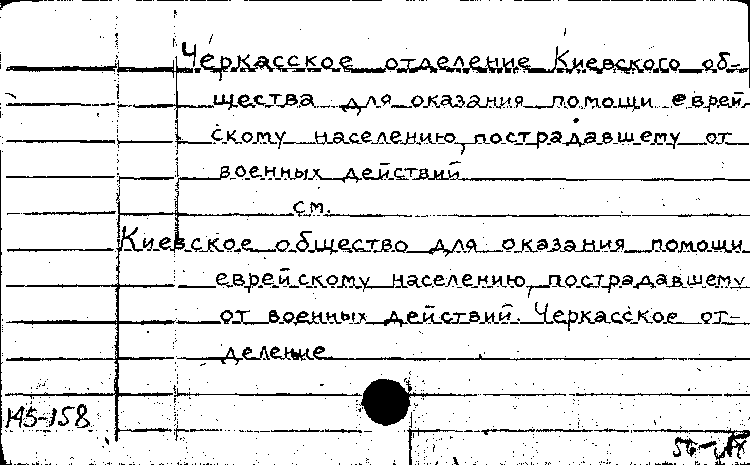 Черкасское отделение Киевского об-
щества для оказания помощи еврей
скому населению, пострадавшему от
военных действий
см.
Киевское общество для оказания помощи
еврейскому населению, пострадавшему
от военных действий. Черкасское от-
деление
145-158